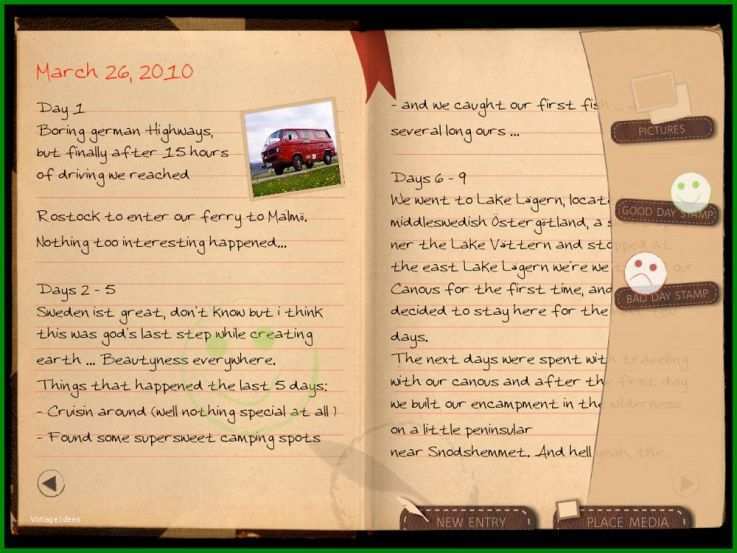 March 26, 2010
Day 1
Boring german Highways,
but finally after 15 hours
of driving we reached
Rostock to enter our ferry to Malmö.
Nothing too interesting happened...
Days 2 - 5
Sweden ist great, don't know but i think
this was god's last step while creating
earth ... Beautyness everywhere.
Things that happened the last 5 days:
- Cruisin around (well nothing special at all )
- Found some supersweet camping spots
- and we caught our first fish
several long ours ...
Days 6 - 9
We went to Lake Lägern,
middleswedish Östergötland, a
ner the Lake Vättern and stopped at
the east Lake Lägern we're we our
Canous for the first time, and
decided to stay here for the
days.
The next days were spent with traveling
with our canous and after the first day
we built our encampment in the wilderness
on a little peninsular
near Snodshemmet. And hell yeah, the
PICTURES
GOOD DAY STAMP
BAD DAY STAMP
NEW ENTRY
PLACE MEDIA
VintageIdees